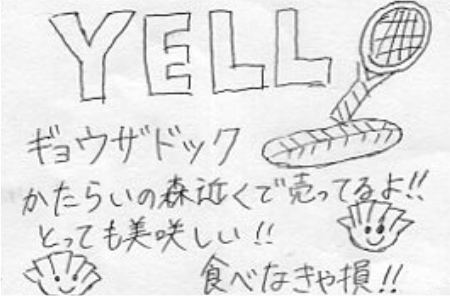 YELL
ギョウザドック
かたらいの森近くで売ってるよ!!
とっても美咲しい!!
食べなきゃ損!!